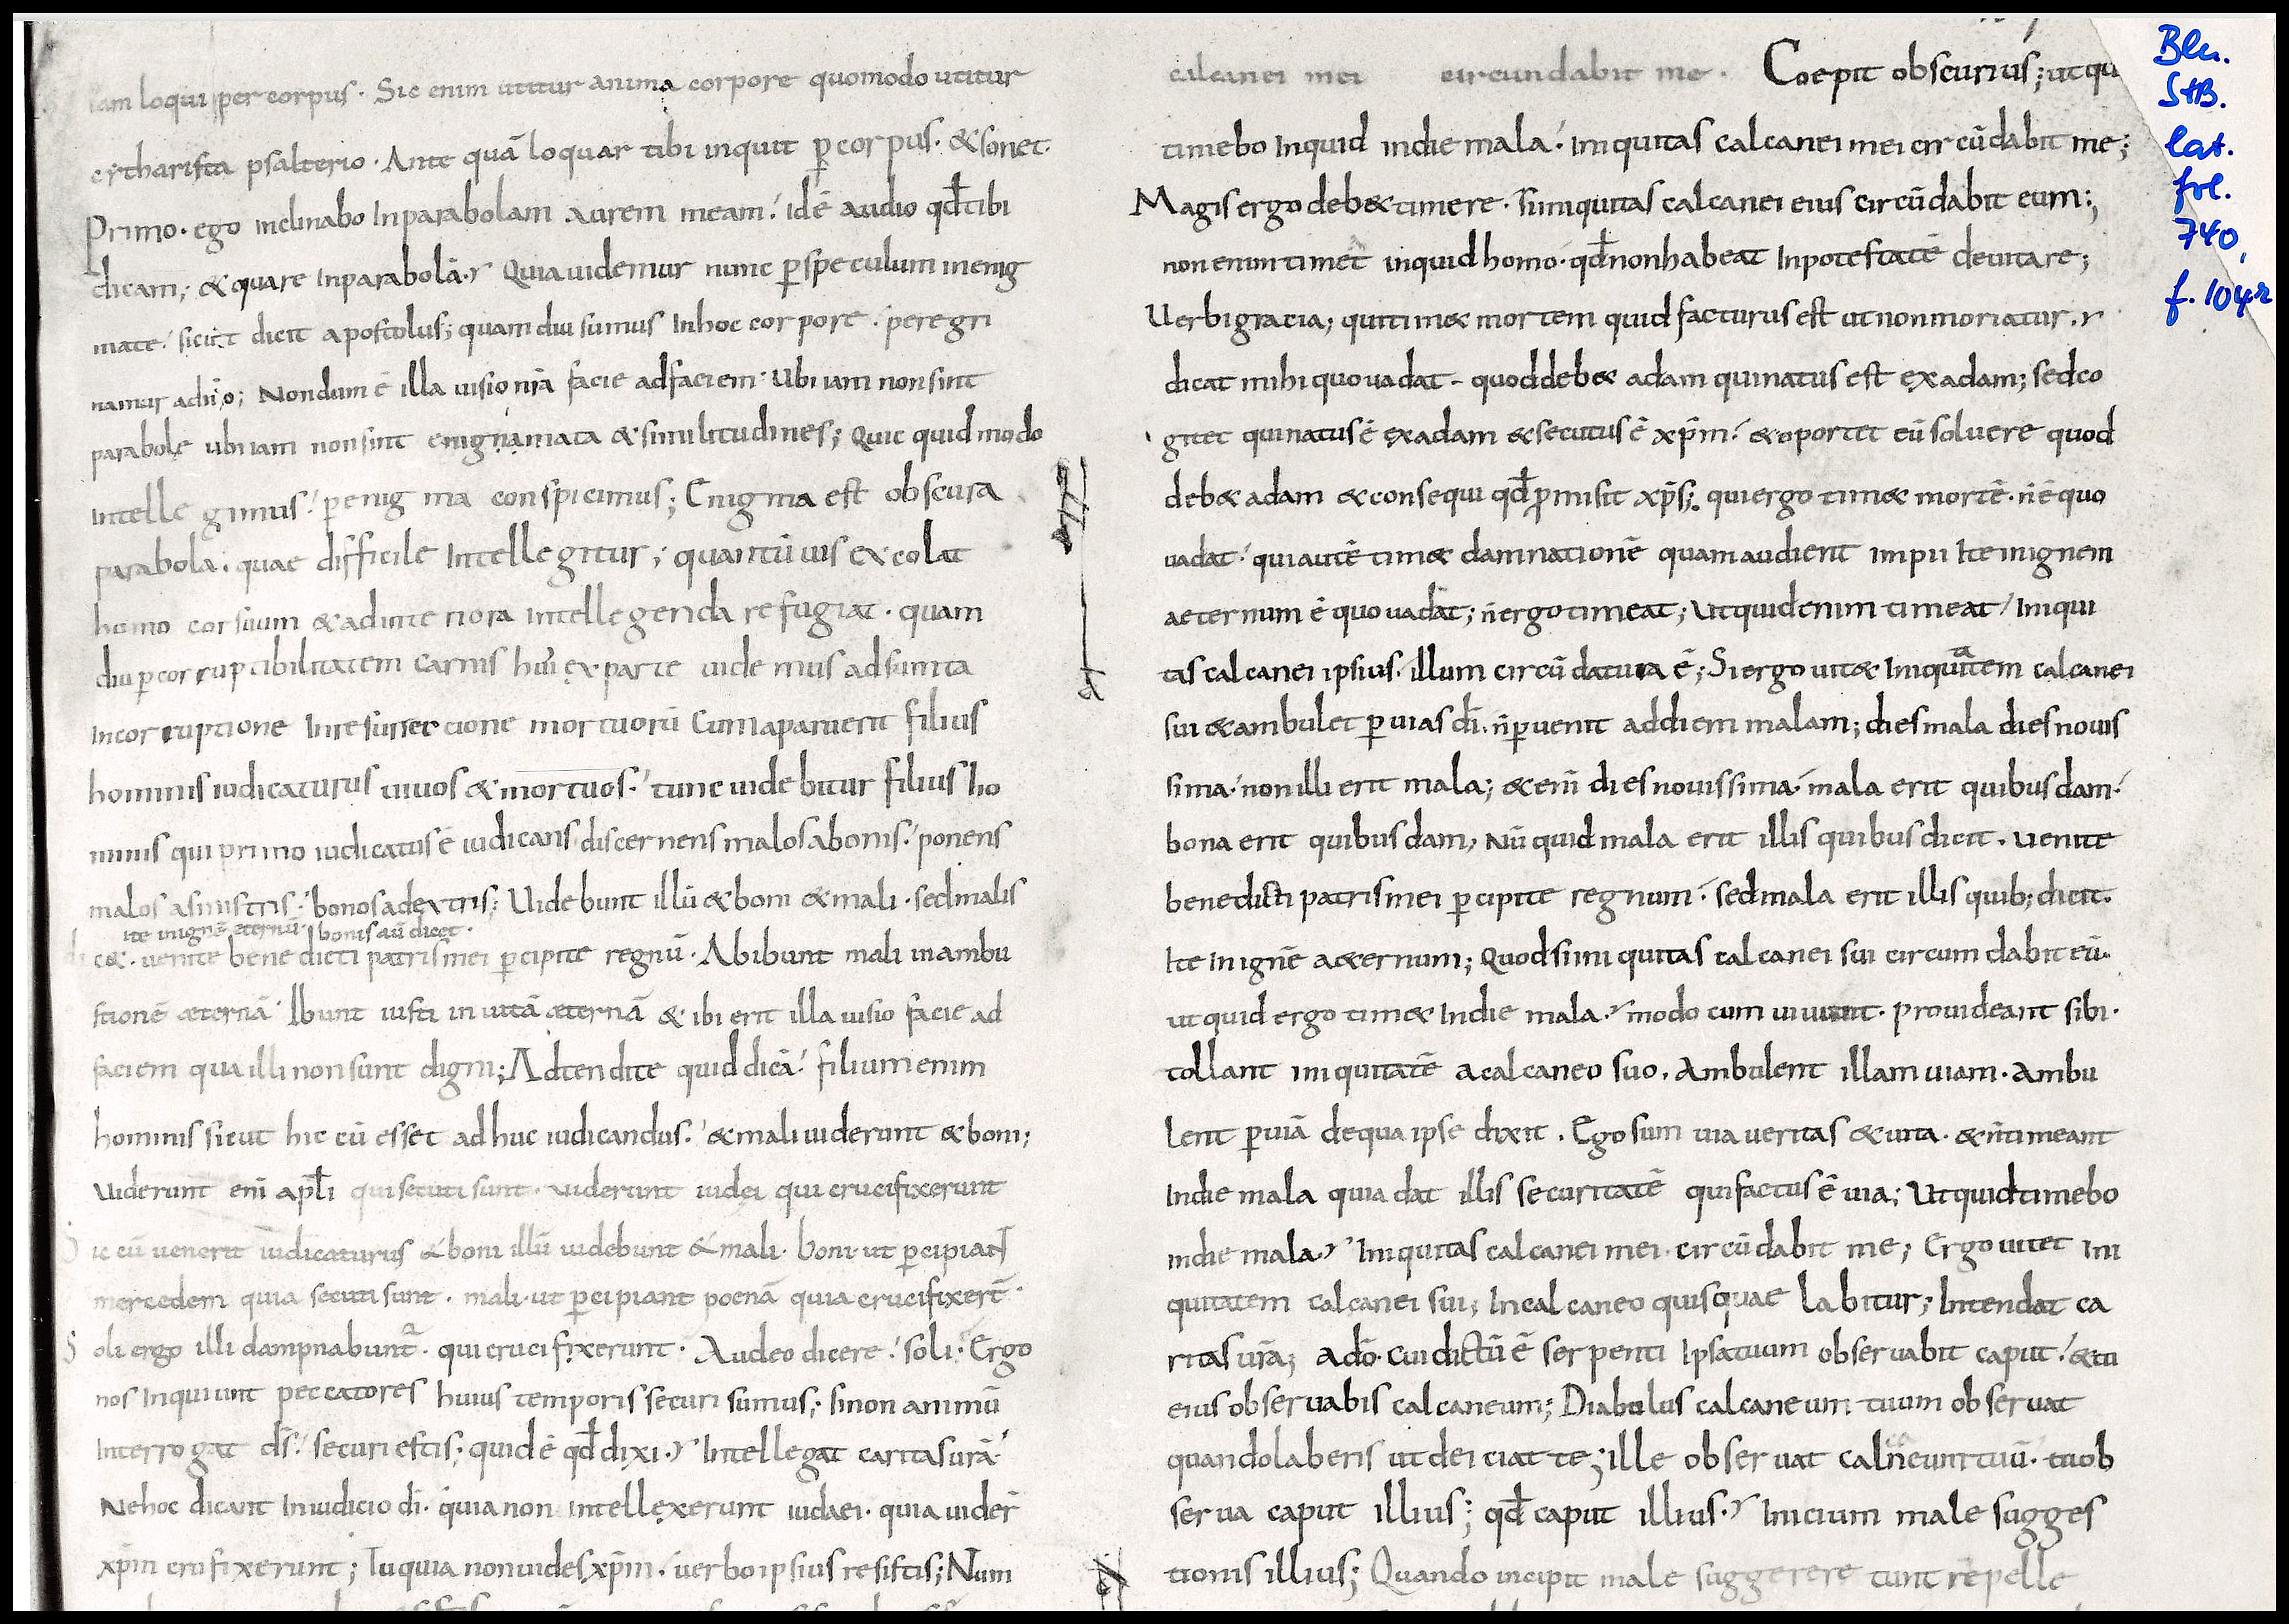 iam loqui per corpus. Sic enim utitur anima corpore quomodo utitur
cytharista psalterio. Ante quā loquar tibi inquit p̄ corpus. & sonet.
Primo. ego inclinabo Inparabolam aurem meam. idē audio qđ tibi
dicam; & quare Inparabolā. Quia uidemur nunc p̄ speculum inenig
mate. sicut dicit apostolus; quam diu sumus Inhoc corpore. peregri
namur adn̄o; Nondum ē illa uisio nr̄a facie adfaciem. Ubi iam nonsint
parabole ubi iam nonsint enigmamata & similitudines; Quic quid modo
Intelle gimus. p̄ enig ma conspicimus; Enigma est obscura
parabola. quae difficile Intellegitur; quantū uis excolat
homo cor suum & adinteriora intellegenda refugiat. quam
diu p̄ corruptibilitatem carnis hui ex parte uidemus adsumta
Incorruptione Inresurrectione mortuorū Cumaparuerit filius
hominis iudicaturus uiuos & mortuos. tunc uidebitur filius ho
minis qui primo iudicatus ē iudicans discernens malos abonis. ponens
malos asinistris. bonos adextris; Uidebunt illū & boni & mali. sed malis
ite inignē eternū. bonis aū dicet.
dic&. uenite benedicti patris mei p̄cipite regnū. Abibunt mali inambu
stionē æternā. Ibunt iusti in uitā æternā & ibi erit illa uisio facie ad
faciem qua illi non sunt digni; Adtendite quid dicā. filium enim
hominis sicut hic cū esset adhuc iudicandus. & mali uiderunt & boni;
Uiderunt eni apl̄i qui secuti sunt. uiderunt iudei qui crucifixerunt
Sic cū uenerit iudicaturus & boni illū uidebunt & mali. boni ut p̄cipiant
mercedem quia secuti sunt. mali ut p̄cipiant poenā quia crucifixer̄t.
Soli ergo illi dampnabunt. qui crucifixerunt. Audeo dicere. soli. Ergo
nos Inquiunt peccatores huius temporis securi sumus; sinon animū
Interrogat dī s. securi estis; quid ē qđ dixi. Intellegat caritas urā.
Nehoc dicant Iniudicio di. quia non intellexerunt iudaei. quia uider̄
xp̄m crufixerunt; Tu quia non uides xp̄m. uerbo ipsius resistis; Num
calcanei mei circundabit me. Coepit obscurius; ut qu
timebo Inquid indie mala. Iniquitas calcanei mei circūdabit me;
Magis ergo deb& timere. siiniquitas calcanei eius circūdabit eum;
non enim timet inquid homo. qđ nonhabeat Inpotestatē deuitare;
Uerbigracia; quitim& mortem quid facturus est ut non moriatur.
dicat mihi quo uadat. quod deb& adam quinatus est ex adam; sed co
gitet quinatus ē ex adam & secutus ē xp̄m. & oportet eū soluere quod
deb& adam & consequi qđ p̄misit xp̄s; qui ergo tim& mortē. n̄ ē quo
uadat. qui autē tim& damnationē quam audient impii Ite inignem
aeternum ē quo uadat; n̄ ergo timeat; Ut quid enim timeat. Iniqui
tas calcanei ipsius. illum circū datura ē; Si ergo uit& Iniquitatem calcanei
sui & ambulet p̄ uias dī. n̄ p̄uenit addiem malam; dies mala dies nouis
sima. non illi erit mala; & enī dies nouissima. mala erit quibus dam.
bona erit quibus dam, Nū quid mala erit illis quibus dicit. uenite
benedicti patris mei p̄cipite regnum. sed mala erit illis quib; dicit.
Ite Inignē a&ernum; Quod siiniquitas calcanei sui circumdabit eū.
ut quid ergo tim& Indie mala. modo cum uiuunt. prouideant sibi.
tollant iniquitatē acalcaneo suo. Ambulent illam uiam. Ambu
lent p̄ uiā dequa ipse dixit. Ego sum uia ueritas & uita. & n̄ timeant
Indie mala quia dat illis securitatē qui factus ē uia; Ut quid timebo
indie mala. Iniquitas calcanei mei. circūdabit me; Ergo uitet Ini
quitatem calcanei sui; Incalcaneo quisquae labitur; Intendat ca
ritas urā; adō. cui dictū ē serpenti Ipsa tuum obseruabit caput. & tu
eius obseruabis calcaneum; Diabolus calcaneum tuum obseruat
quando laberis ut deiciat te; ille obseruat calcaneum tuū. tu ob
serua caput illius; qđ caput illius. Inicium male sugges
tionis illius; Quando incipit male suggerere tunt repelle
Bln.
StB.
lat.
fol.
740,
f. 104r